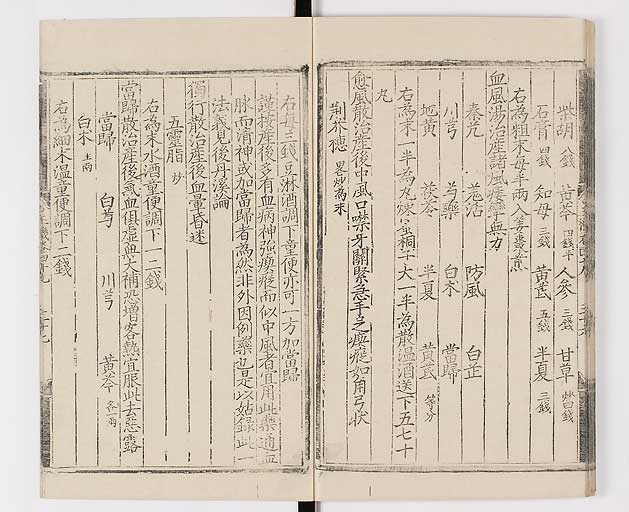 柴胡 八錢 黃芩 四錢半 人參 三錢 甘草 炒四錢
石膏 四錢 知母 三錢 黃芪 五錢 半夏 三錢
右為粗末每半兩入姜棗煎
血風湯治産諸風痿攣無力
秦艽 羗活 防風 白芷
川芎 芍藥 白朮 當歸
地黃 茯苓 半夏 黃芪 等分
右為末一半為丸煉蜜桐子大一半為散温酒送下五七十
丸
愈風散治産後中風口噤牙關緊急手足瘈瘲如角弓状
荊芥穂 畧炒為末
右每三錢豆淋酒調下童便亦可一方加當歸
謹按産後多有血病神強瘈瘲而似中風者宜用此藥通血
脉而清神或加當歸者為然非外因例藥也是以姑録此一
法義見後丹溪論
獨行散治産後血暈昏迷
五靈脂 炒
右為末水酒童便調下一二錢
當歸散治産後氣血俱虚無大補恐增客熱宜服此去惡露
當歸 白芍 川芎 黃芩 各一兩
白朮 半兩
右為細末温童便調下二錢